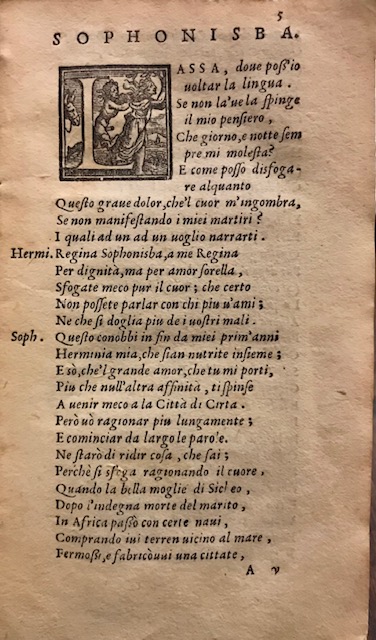 5
SOPHONISBA.
LASSA, doue poss'io
uoltar la lingua.
Se non la'ue la spinge
il mio pensiero,
Che giorno, e notte sem
pre mi molesta?
E come posso disfoga-
re alquanto
Questo graue dolor, che'l cuor m'ingombra,
Se non manifestando i miei martiri?
I quali ad un ad un uoglio narrarti.
Hermi. Regina Sophonisba, a me Regina
Per dignità, ma per amor sorella,
Sfogate meco pur il cuor; che certo
Non possete parlar con chi piu u'ami;
Ne che si doglia piu de i uostri mali.
Soph. Questo conobbi in fin da miei prim'anni
Herminia mia, che sian nutrite insieme;
E sò, che'l grande amor, che tu mi porti,
Piu che null'altra affinità, ti spinse
A uenir meco a la Città di Cirta.
Però uò ragionar piu lungamente;
E cominciar da largo le parole.
Ne starò di ridir cosa, che sai;
Perchè si sfoga ragionando il cuore,
Quando la bella moglie di Sicheo,
Dopo l'indegna morte del marito,
In Africa passò con certe naui,
Comprando iui terren uicino al mare,
Fermossi, e fabricòuui una cittate,
A v